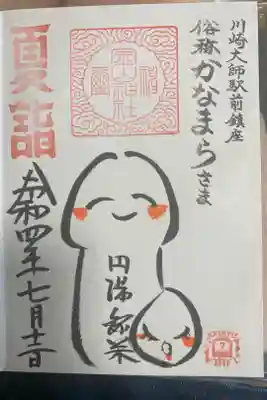 川崎大師駅前鎮座
俗称かなまらさま
夏詣
円満弥栄
令和四年七月